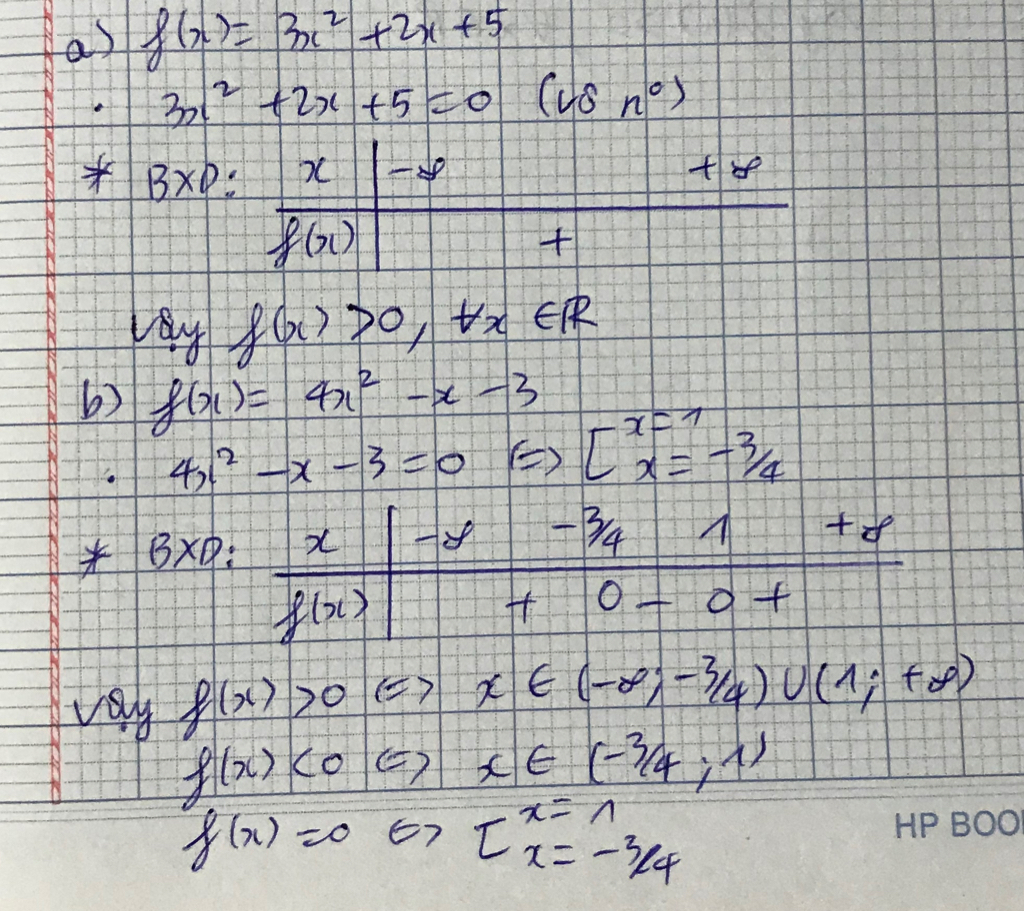 a) f(x) = 3x² + 2x + 5
• 3x² + 2x + 5 = 0 (vô n⁰)
* BXD: x | -∞ +∞
f(x) | +
Vậy f(x) > 0, ∀x ∈ ℝ
b) f(x) = 4x² - x - 3
• 4x² - x - 3 = 0 ⇔ [ x = 1
x = -3/4
* BXD: x | -∞ -3/4 1 +∞
f(x) | + 0 - 0 +
Vậy f(x) > 0 ⇔ x ∈ (-∞; -3/4) ∪ (1; +∞)
f(x) < 0 ⇔ x ∈ (-3/4; 1)
f(x) = 0 ⇔ [ x = 1
x = -3/4
HP BOO